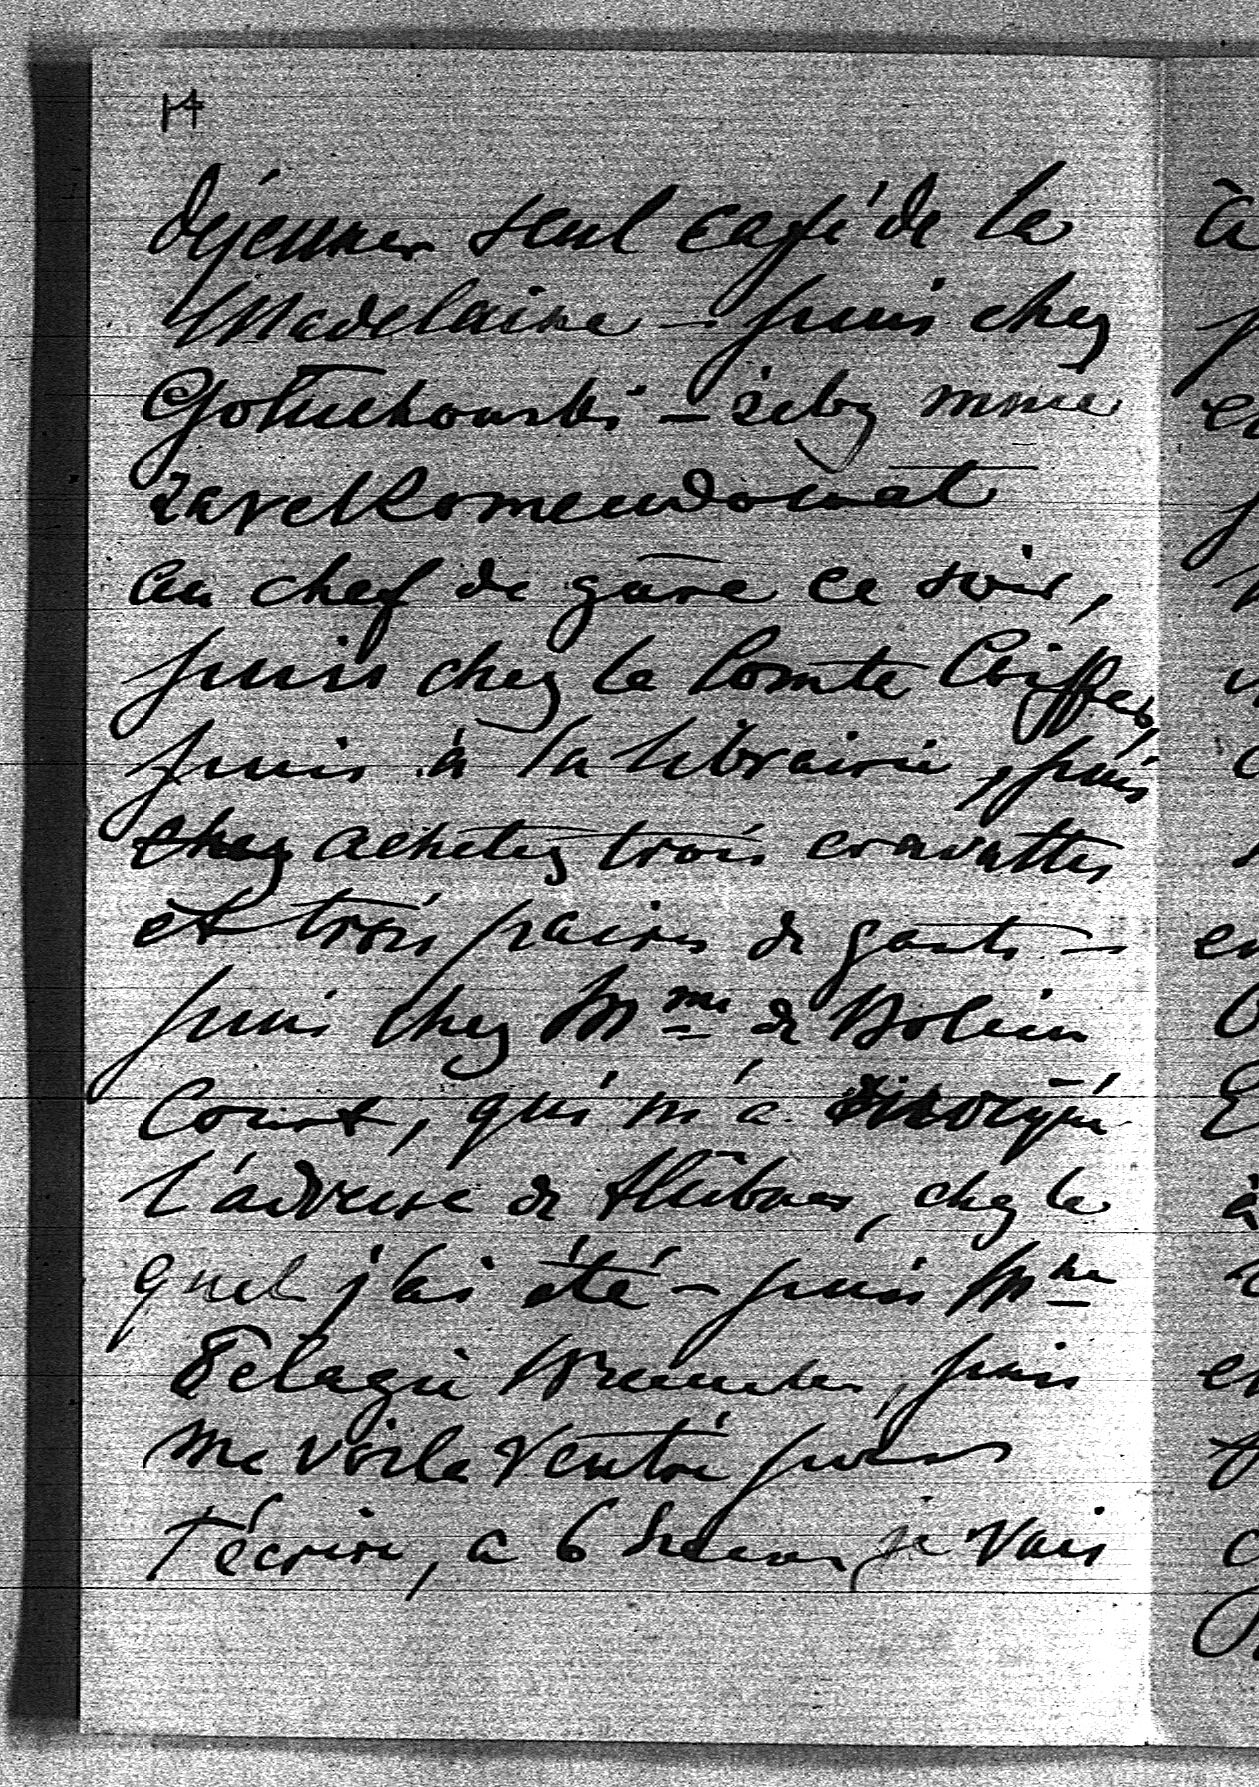 14
déjeuner seul café de la
Madelaine – puis chez
Gołuchowski – żeby mnie
zarekomendował
au chef de gare ce soir,
puis chez le Comte
puis à la librairie, puis
chez achetez trois cravattes
et trois paires de gants –
puis chez Mme de
Court, qui m'a
l'adresse de Hübner, chez le
quel j'ai été – puis Mme
Pelagie, puis
me voila rentré pour
t'écrire, a 6 heures je vais